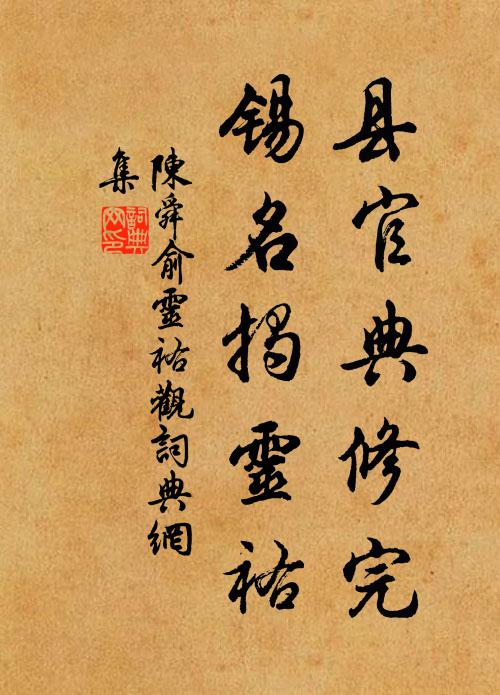 县官典修完
锡名揭靈祐
陳舜俞靈祐觀詞典網
集
詞典
网印